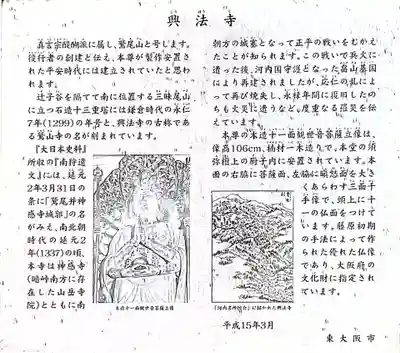 興法寺
真言宗醍醐派に属し、鷲尾山と号します。
役行者の創建と伝え、本尊が製作安置さ
れた平安時代には建立されていたと思わ
れます。
辻子谷を隔てて南に位置する三昧尾山
に立つ石造十三重塔には鎌倉時代の永仁
7年(1299)の年号と、興法寺の古称であ
る鷲山寺の名が刻まれています。
『大日本史料』
所収の『南狩遺
文』には、延元
2年3月31日の
条に『鷲尾井神
感寺城郭』の名
がみえ、南北朝
時代の延元2
年(1337)の頃、
本寺は神感寺
(暗峠南方に存
在した山岳寺
院)とともに南
朝方の城塞となって正平の戦いをむかえ
たことが知られます。この戦いで兵火に
遭った後、河内国守護となった畠山基国
により再建されましたが、応仁の乱によ
って再び焼失し、永禄年間に復旧したの
ちも火災に遭うなど、度重なる罹災を伝
えています。
本尊の木造十一面観世音菩薩立像は、
像高106cm、楠材一木造りで、本堂の須
弥壇上の厨子内に安置されています。本
面の右脇に菩薩面、左脇に瞋怒面を大き
くあらわす三面千
手像で、頭上に十
一の仏面をつけて
います。藤原初期
の手法によって作
られた優れた仏像
であり、大阪府の
文化財に指定され
ています。
木造十一面観世音菩薩立像
『河内名所図会』に描かれた興法寺
平成15年3月
東大阪市